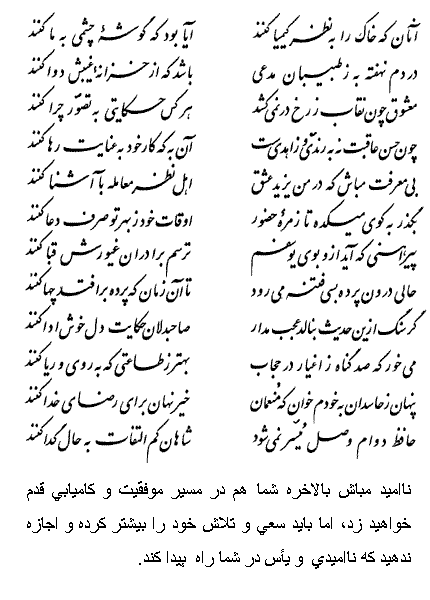 آنان که خاک را به نظر کیمیا کنند آیا بود که گوشهٔ چشمی به ما کنند
دردم نهفته به ز طبیبان مدعی باشد که از خزانهٔ غیبش دوا کنند
معشوق چون نقاب ز رخ در نمی‌کشد هر کس حکایتی به تصوّر چرا کنند
چون حسن عاقبت نه به رندی و زاهدی‌ست آن به که کار خود به عنایت رها کنند
بی معرفت مباش که در من یزید عشق اهل نظر معامله با آشنا کنند
بگذر به کوی میکده تا زمرهٔ حضور اوقات خود ز بهر تو صرف دعا کنند
پیراهنی که آید از و بوی یوسفم ترسم برادران غیورش قبا کنند
حالی درون پرده بسی فتنه می رود تا آن زمان که پرده برافتد چها کنند
گر سنگ ازین حدیث بنالد عجب مدار صاحبدلان حکایت دل خوش ادا کنند
می خور که صد گناه ز اغیار در حجاب بهتر ز طاعتی که به روی و ریا کنند
پنهان ز حاسدان به خودم خوان که مُنعمان خیر نهان برای رضای خدا کنند
حافظ دوام وصل میسّر نمی شود شاهان کم التفات به حال گدا کنند
ناامید مباش بالاخره شما هم در مسیر موفقیت و کامیابي قدم
خواهید زد، اما باید سعي و تلاش خود را بیشتر کرده و اجازه
ندهید که ناامیدي و یأس در شما راه پیدا کند.